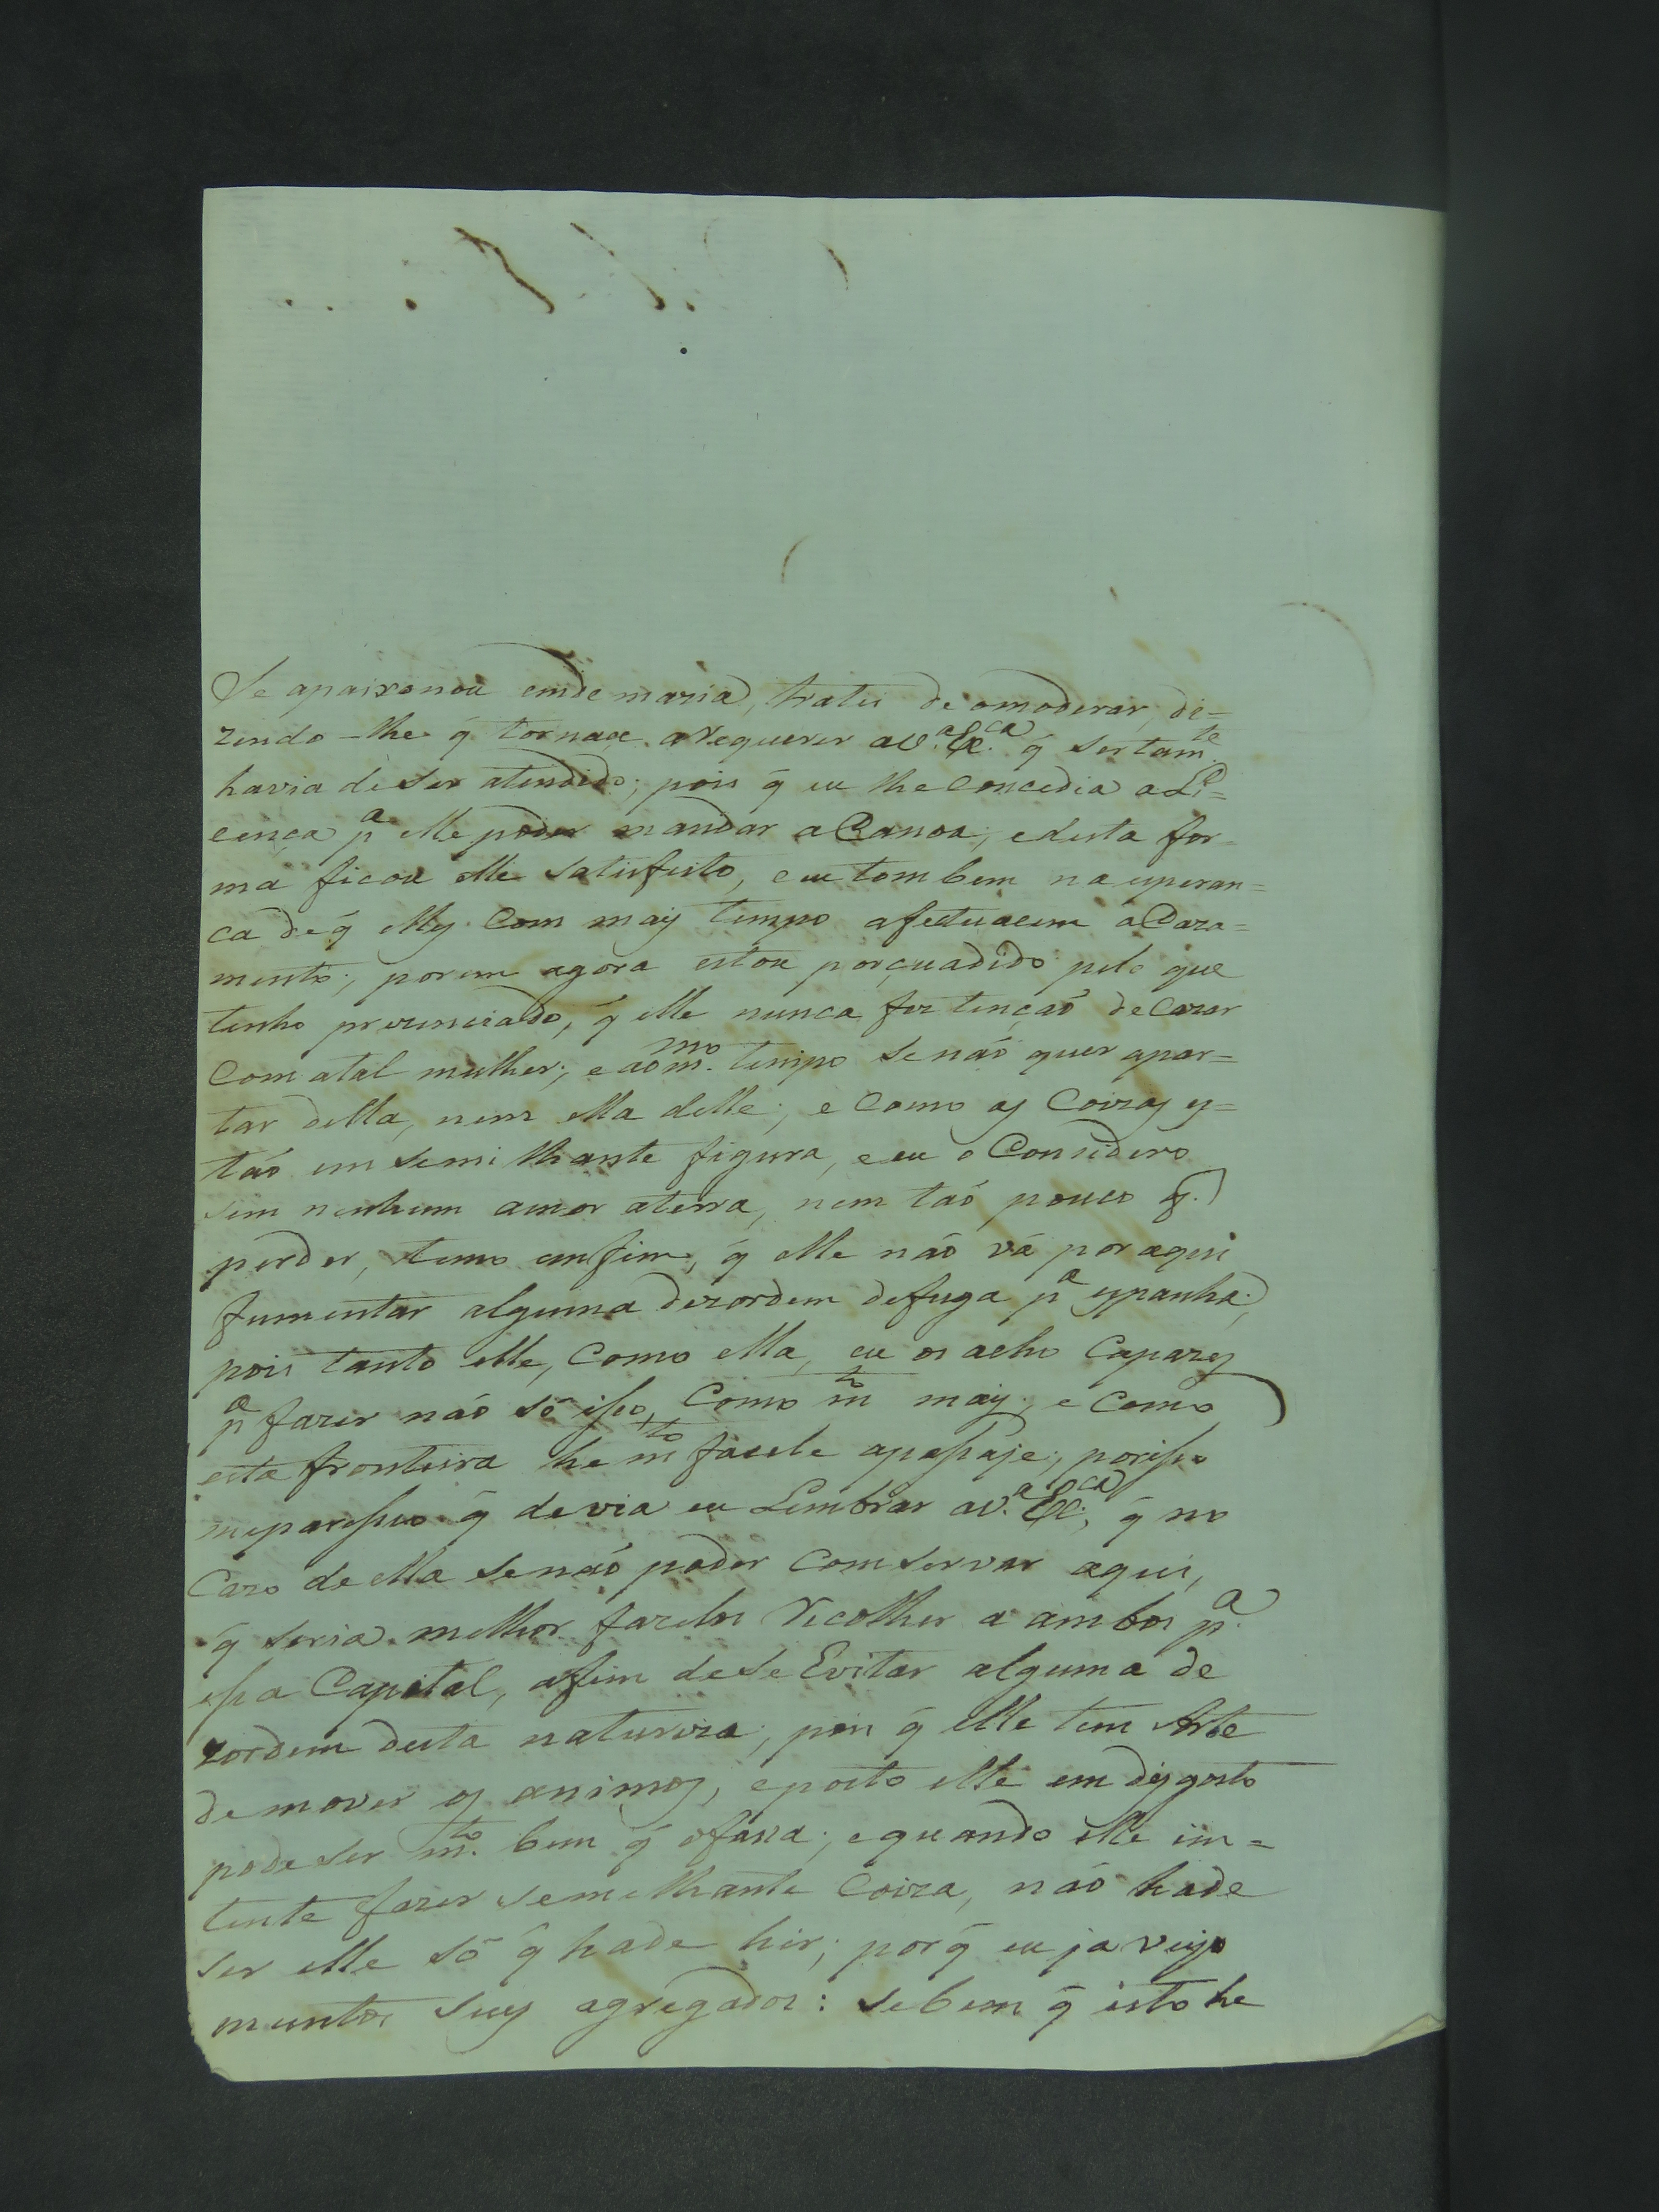 Se apaixonou emde mazia, tratei de omoderar, di=
zendo-lhe q̃ tornace aRequerer aV.ª Ex.ca q̃ sertam.te
havia deser atendido; pois q̃ eu lhe concedia aLi=
cença p.ª elle poder mandar aCanoa; edesta for=
ma ficou elle satisfeito, eeu tombem na esperan=
ca deq̃ elles com mais tempo afectuacem oCaza=
mento; porem agora estou porçuadido pelo que
tenho prezenciado, q̃ elle nunca fez tençaõ deCazar
Com atal mulher; e aom.mo tempo senaõ quer apar=
tar della, nem ella delle; e Como as Coizas es=
taõ em semilhante figura, eeu oConsidero
sem nenhum amor aterra, nem taõ pouco q̃.
perder, temo emfim, q̃ elle naõ vá por aqui
fumentar alguma dezordem defuga p.ª espanha;
pois tanto elle, como ella, eu os acho Capazes
p.ª fazer naõ só isso, Como m.to mais; e Como
esta fronteira he m.to facele apassaje; porisso
mepparesseo q̃ devia eu Lembrar aV.ª Ex.ca, q̃ no
Cazo de ella senaõ poder Comservar aqui,
q̃ seria melhor fazelos Recolher a ambos p.ª
essa Capital, afim dese Evitar alguma de
zordem desta natureza; pois q̃ elle tem Arte
demover os animos, eposto elle em disgosto
podeser m.to bem q̃ ofassa; equando elle in=
tente fazer semelhante Coiza, naõ hade
ser elle só q̃ hade hir; porq̃ eu ja vejo
muntos seus agregados: sebem q̃ isto he